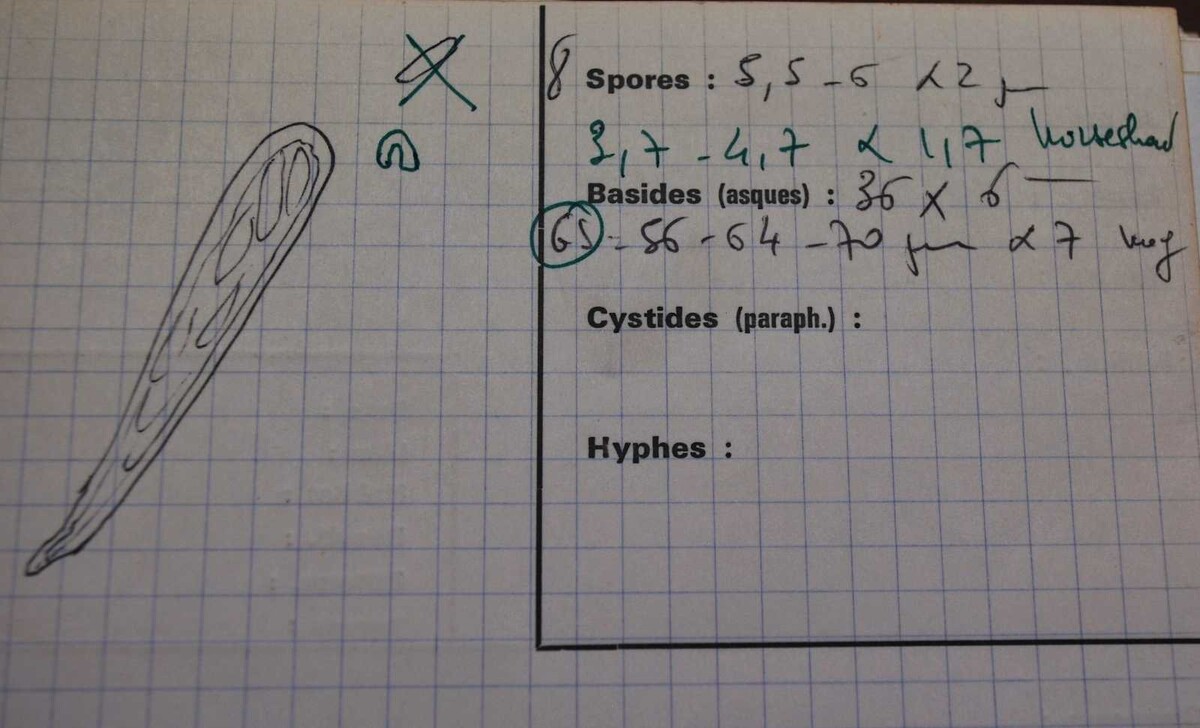 8 Spores : 5,5 - 6 x 2 µm
3,7 - 4,7 x 1,7
Basides (asques) : 36 x 6
65 - 56 - 64 - 70 µm x 7
Cystides (paraph.) :
Hyphes :